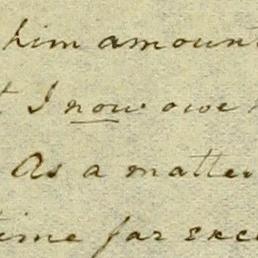 him amount
I now owe
As a matter
time far exce